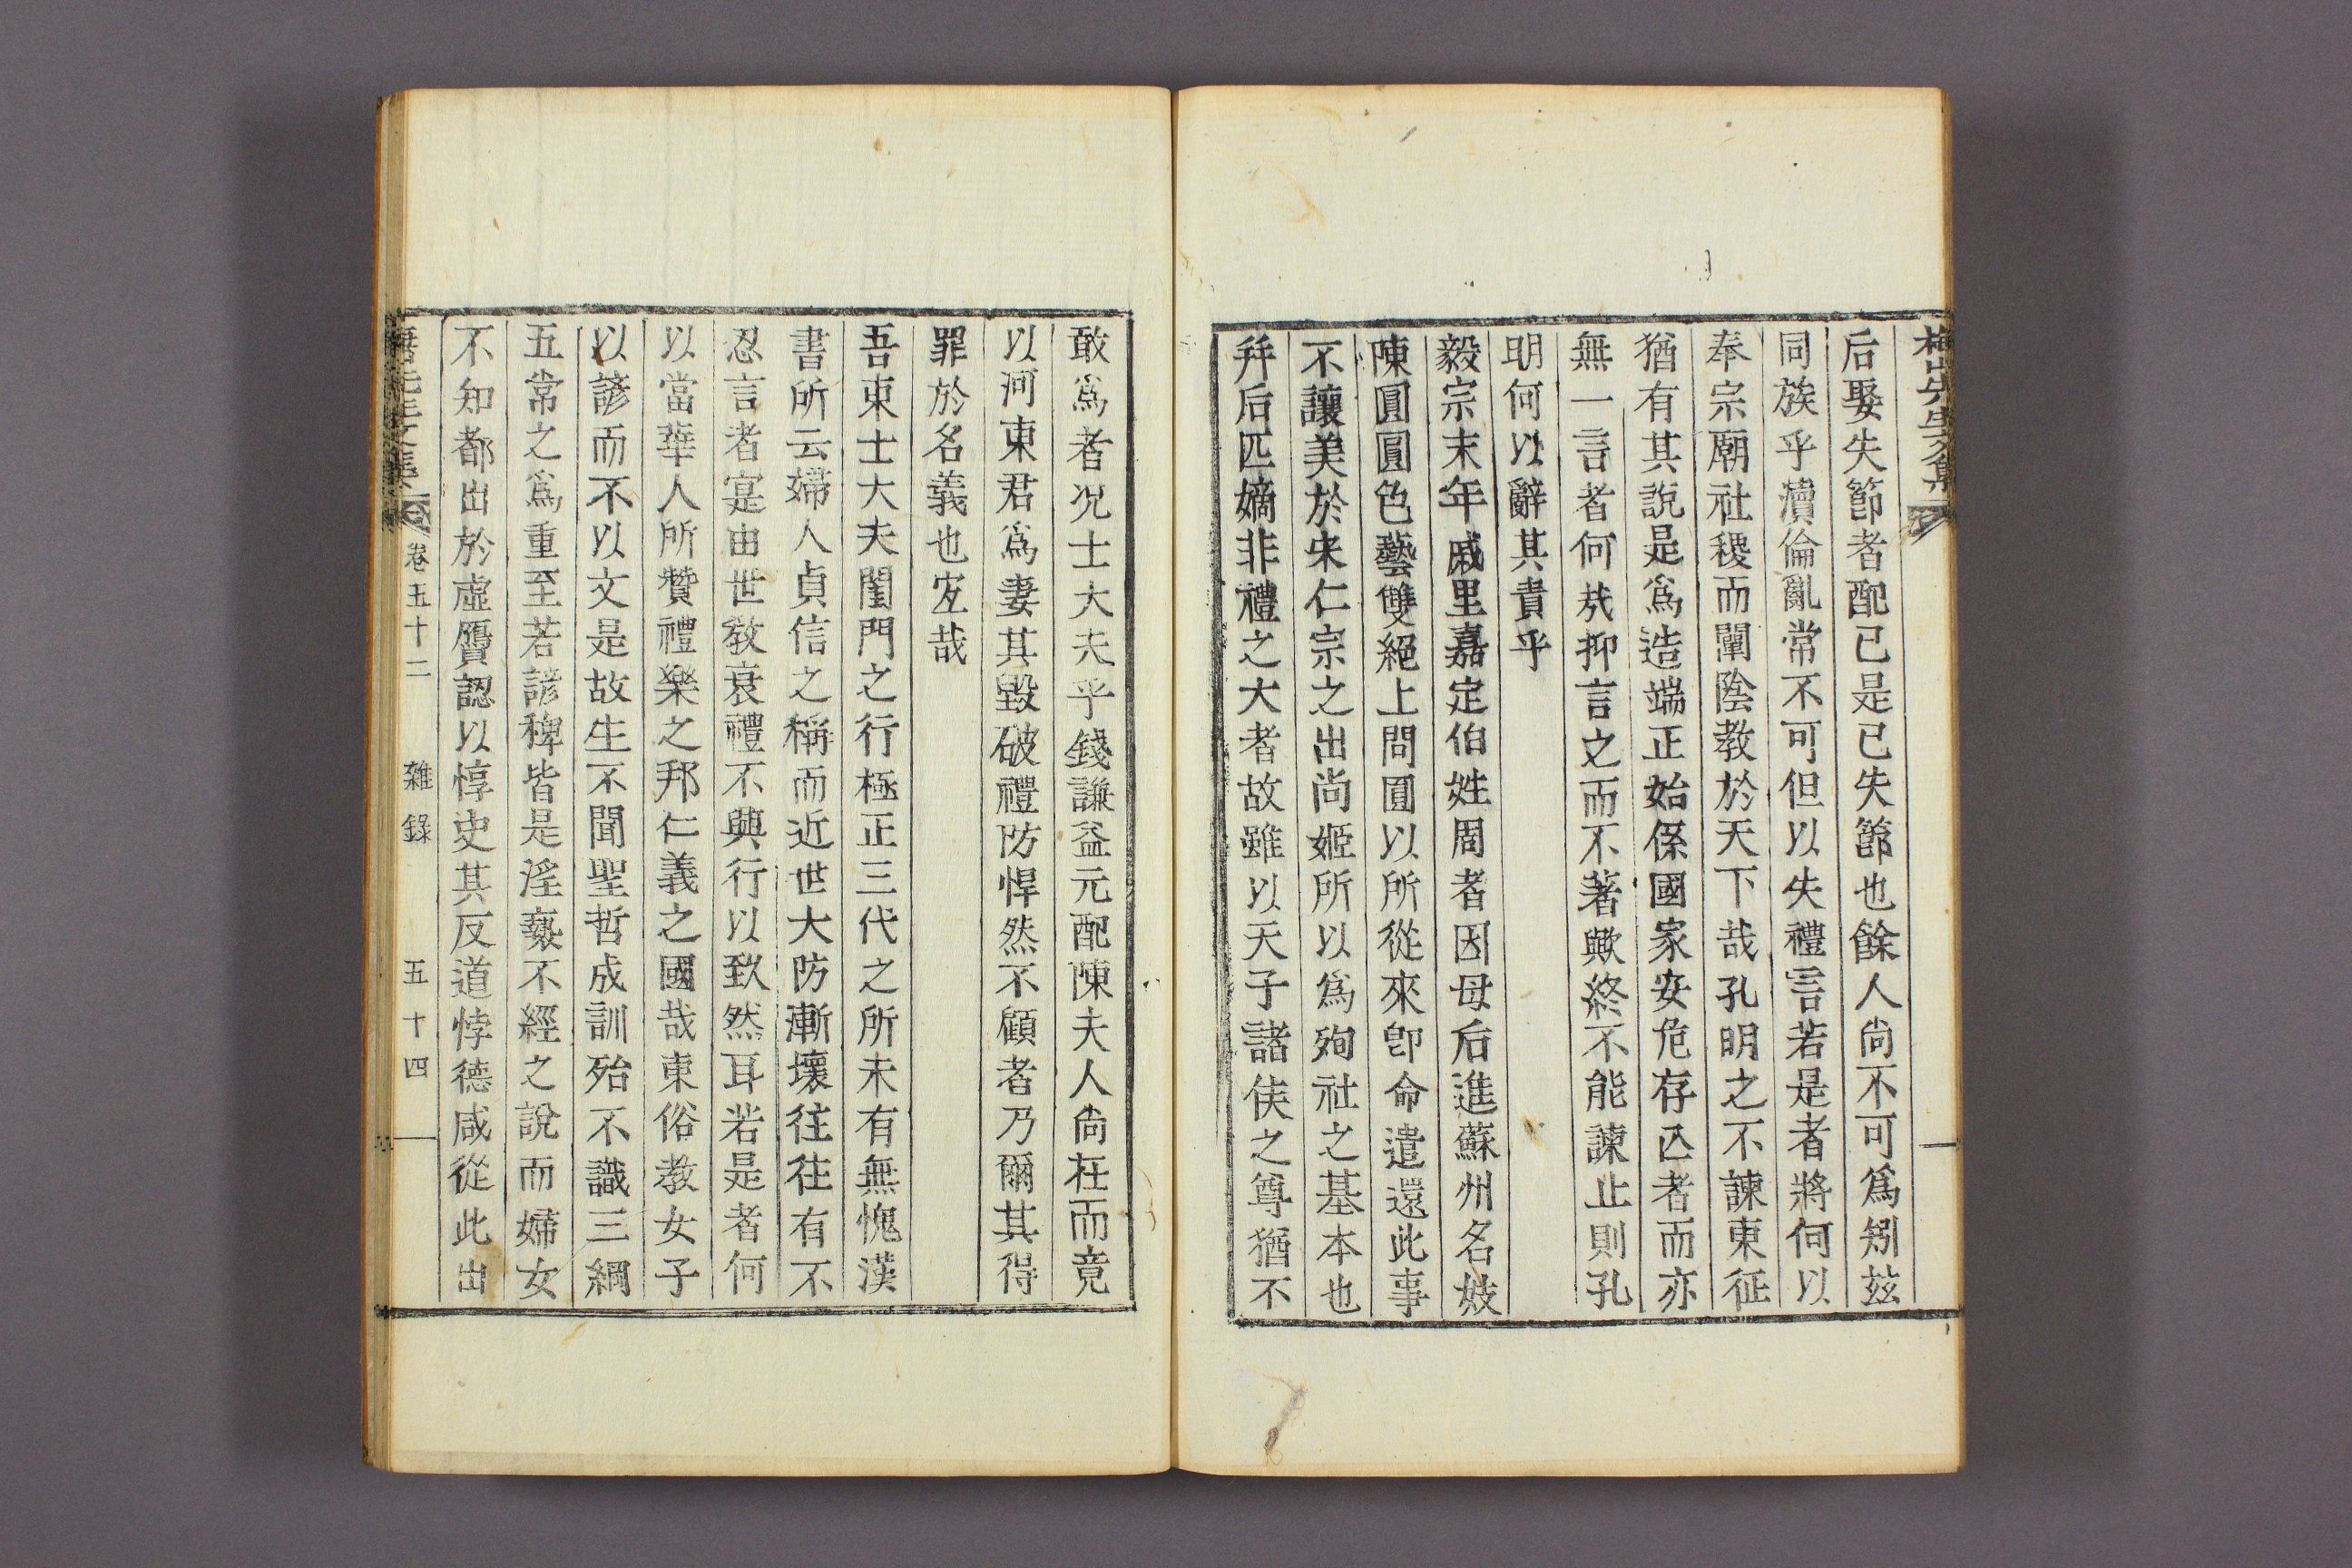 梅山先生文集
后娶失節者配己是己失節也餘人尙不可爲矧玆
同族乎瀆倫亂常不可但以失禮言若是者將何以
奉宗廟社稷而闡陰教於天下哉孔明之不諫東征
猶有其說是爲造端正始係國家安危存亾者而亦
無一言者何㢤抑言之而不著歟終不能諫止則孔
明何以辭其責乎
毅宗末年戚里嘉定伯姓周者因母后進蘇州名妓
陳圓圓色藝雙絕上問圓以所從來卽命遣還此事
不讓美於宋仁宗之出尚姬所以爲殉社之基本也
幷后匹嫡非禮之大者故雖以天子諸侯之尊猶不
敢爲者况士大夫乎錢謙益元配陳夫人尙在而竟
以河東君爲妻其毀破禮防悍然不顧者乃爾其得
罪於名義也宐哉
吾東士大夫閨門之行極正三代之所未有無愧漢
書所云婦人貞信之稱而近世大防漸壞往往有不
忍言者寔由世教衰禮不興行以致然耳若是者何
以當華人所贊禮樂之邦仁義之國哉東俗教女子
以諺而不以文是故生不聞聖哲成訓殆不識三綱
五常之爲重至若諺稗皆是淫褻不經之說而婦女
不知都出於虛贗認以惇史其反道悖德咸從此出
卷五十二 雜錄 五十四